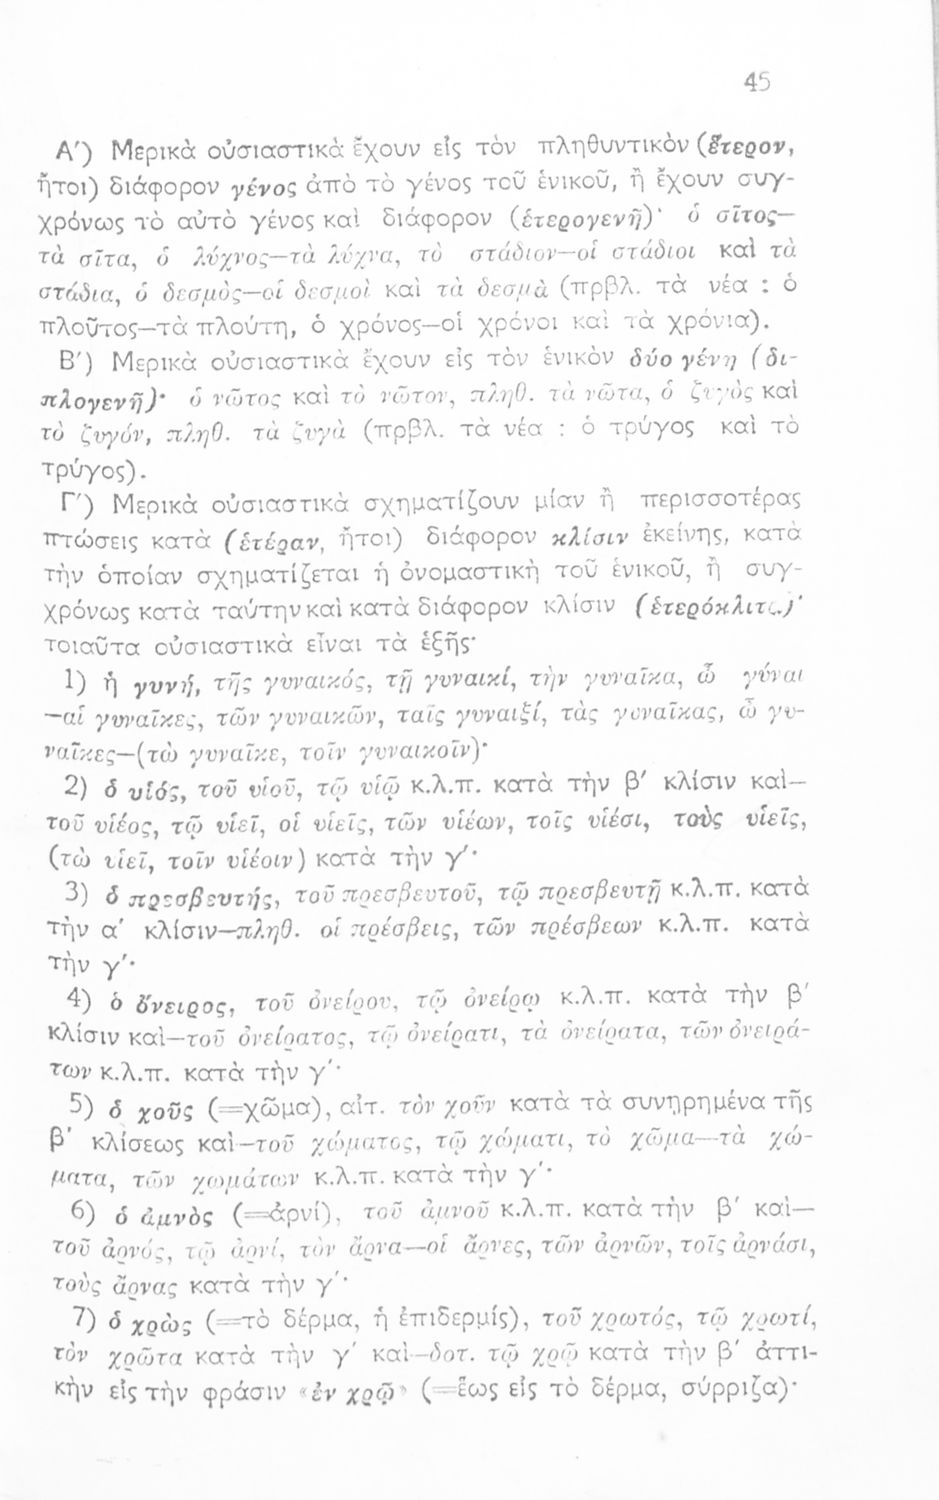 45
Α') Μερικὰ οὐσιαστικὰ ἔχουν εἰς τὸν πληθυντικὸν (ἕτερον,
ἤτοι) διάφορον γένος ἀπὸ τὸ γένος τοῦ ἑνικοῦ, ἢ ἔχουν συγ-
χρόνως τὸ αὐτὸ γένος καὶ διάφορον (ἑτερογενῆ)· ὁ σῖτος—
τὰ σῖτα, ὁ λύχνος—τὰ λύχνα, τὸ στάδιον—οἱ στάδιοι καὶ τὰ
στάδια, ὁ δεσμὸς—οἱ δεσμοὶ καὶ τὰ δεσμὰ (πρβλ. τὰ νέα : ὁ
πλοῦτος—τὰ πλούτη, ὁ χρόνος—οἱ χρόνοι καὶ τὰ χρόνια).
Β') Μερικὰ οὐσιαστικὰ ἔχουν εἰς τὸν ἑνικὸν δύο γένη (δι-
πλογενῆ)· ὁ νῶτος καὶ τὸ νῶτον, πληθ. τὰ νῶτα, ὁ ζυγὸς καὶ
τὸ ζυγόν, πληθ. τὰ ζυγὰ (πρβλ. τὰ νέα : ὁ τρύγος καὶ τὸ
τρύγος).
Γ') Μερικὰ οὐσιαστικὰ σχηματίζουν μίαν ἢ περισσοτέρας
πτώσεις κατὰ (ἑτέραν, ἤτοι) διάφορον κλίσιν ἐκείνης, κατὰ
τὴν ὁποίαν σχηματίζεται ἡ ὀνομαστικὴ τοῦ ἑνικοῦ, ἢ συγ-
χρόνως κατὰ ταύτην καὶ κατὰ διάφορον κλίσιν (ἑτερόκλιτα)·
τοιαῦτα οὐσιαστικὰ εἶναι τὰ ἑξῆς·
1) ἡ γυνή, τῆς γυναικός, τῇ γυναικί, τὴν γυναῖκα, ὦ γύναι
—αἱ γυναῖκες, τῶν γυναικῶν, ταῖς γυναιξί, τὰς γυναῖκας, ὦ γυ-
ναῖκες—(τὼ γυναῖκε, τοῖν γυναικοῖν)·
2) ὁ υἱός, τοῦ υἱοῦ, τῷ υἱῷ κ.λ.π. κατὰ τὴν β' κλίσιν καὶ—
τοῦ υἱέος, τῷ υἱεῖ, οἱ υἱεῖς, τῶν υἱέων, τοῖς υἱέσι, τοὺς υἱεῖς,
(τὼ υἱεῖ, τοῖν υἱέοιν) κατὰ τὴν γ'·
3) ὁ πρεσβευτής, τοῦ πρεσβευτοῦ, τῷ πρεσβευτῇ κ.λ.π. κατὰ
τὴν α' κλίσιν—πληθ. οἱ πρέσβεις, τῶν πρέσβεων κ.λ.π. κατὰ
τὴν γ'·
4) ὁ ὄνειρος, τοῦ ὀνείρου, τῷ ὀνείρῳ κ.λ.π. κατὰ τὴν β'
κλίσιν καὶ—τοῦ ὀνείρατος, τῷ ὀνείρατι, τὰ ὀνείρατα, τῶν ὀνειρά-
των κ.λ.π. κατὰ τὴν γ'·
5) ὁ χοῦς (=χῶμα), αἰτ. τὸν χοῦν κατὰ τὰ συνῃρημένα τῆς
β' κλίσεως καὶ—τοῦ χώματος, τῷ χώματι, τὸ χῶμα—τὰ χώ-
ματα, τῶν χωμάτων κ.λ.π. κατὰ τὴν γ'·
6) ὁ ἀμνὸς (=ἀρνί), τοῦ ἀμνοῦ κ.λ.π. κατὰ τὴν β' καὶ—
τοῦ ἀρνός, τῷ ἀρνί, τὸν ἄρνα—οἱ ἄρνες, τῶν ἀρνῶν, τοῖς ἀρνάσι,
τοὺς ἄρνας κατὰ τὴν γ'·
7) ὁ χρὼς (=τὸ δέρμα, ἡ ἐπιδερμίς), τοῦ χρωτός, τῷ χρωτί,
τὸν χρῶτα κατὰ τὴν γ' καὶ—δοτ. τῷ χρῷ κατὰ τὴν β' ἀττι-
κὴν εἰς τὴν φράσιν «ἐν χρῷ» (=ἕως εἰς τὸ δέρμα, σύρριζα)·